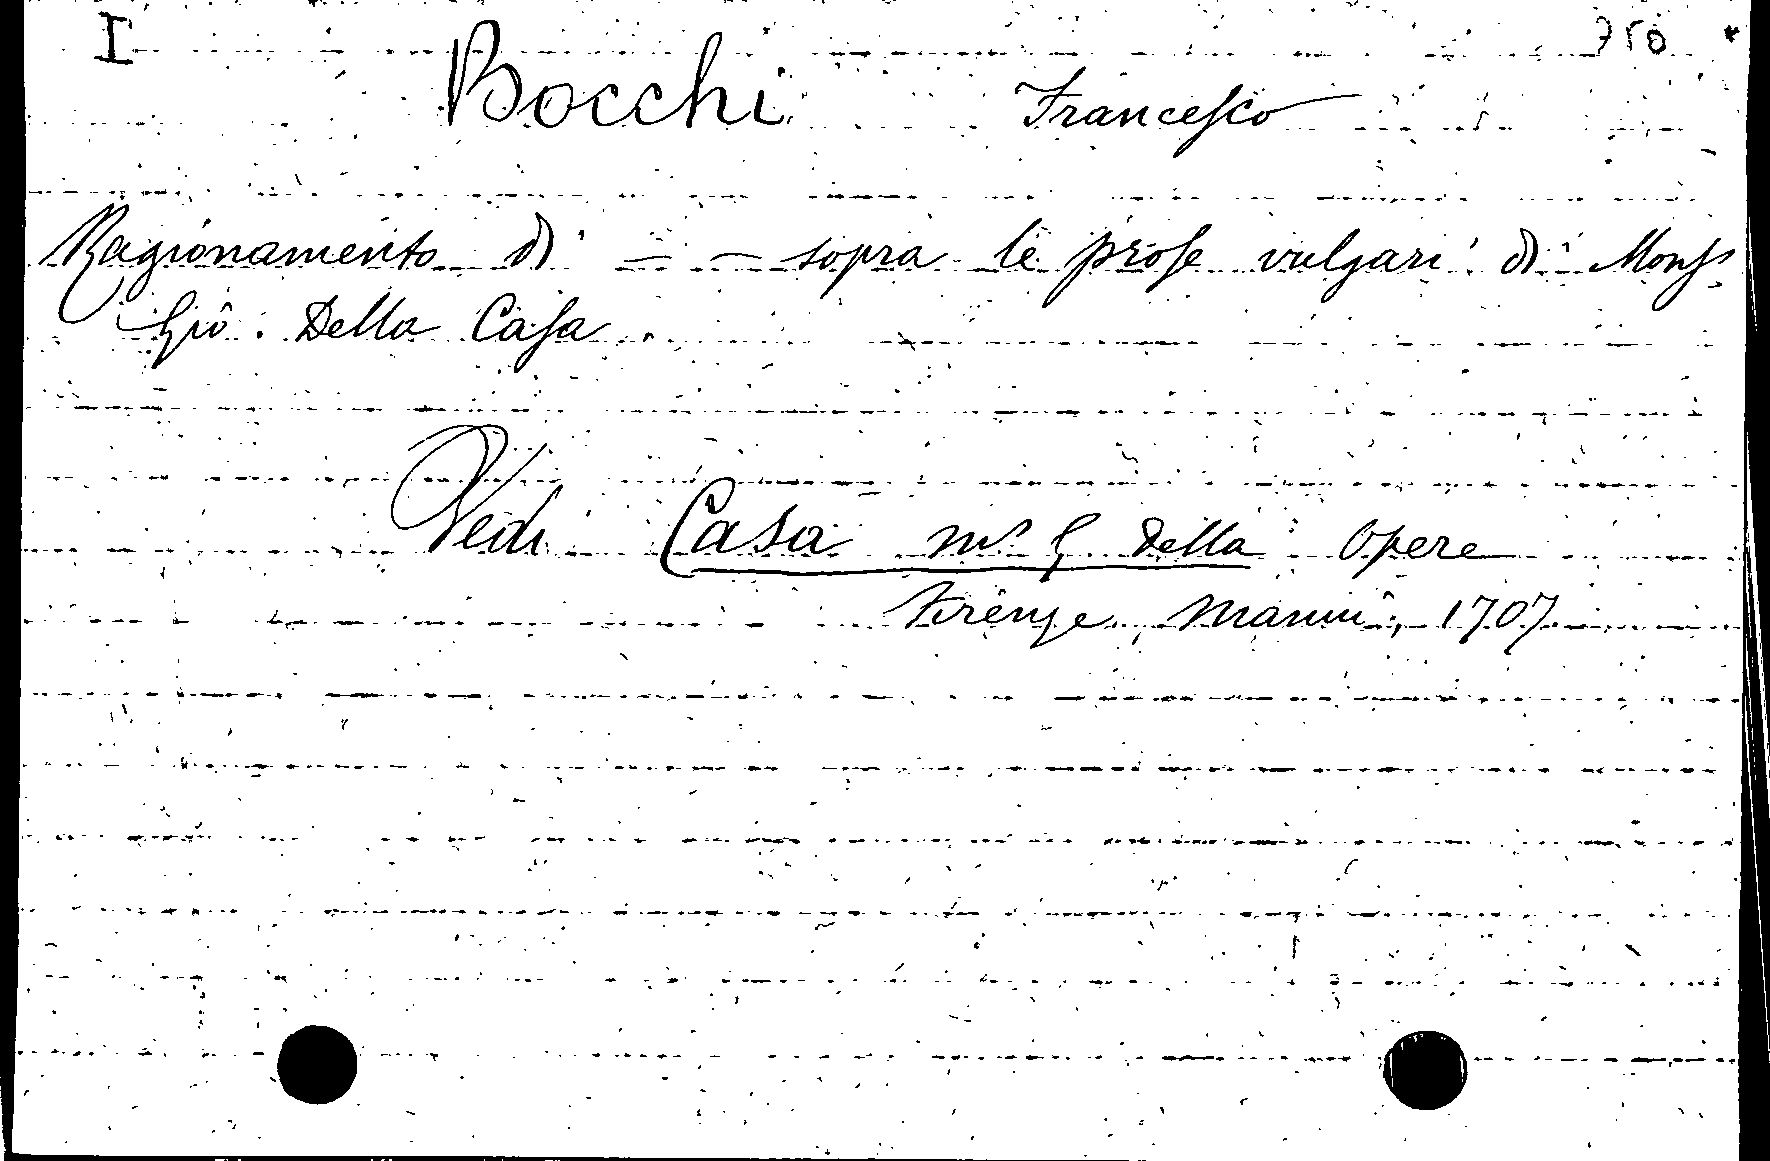 I 750
Bocchi Francesco
Ragionamento di = - sopra le prose vulgari di Monsr
Gio. Della Casa.
Vedi Casa mr G. Della Opere
Firenze, Manni, 1707